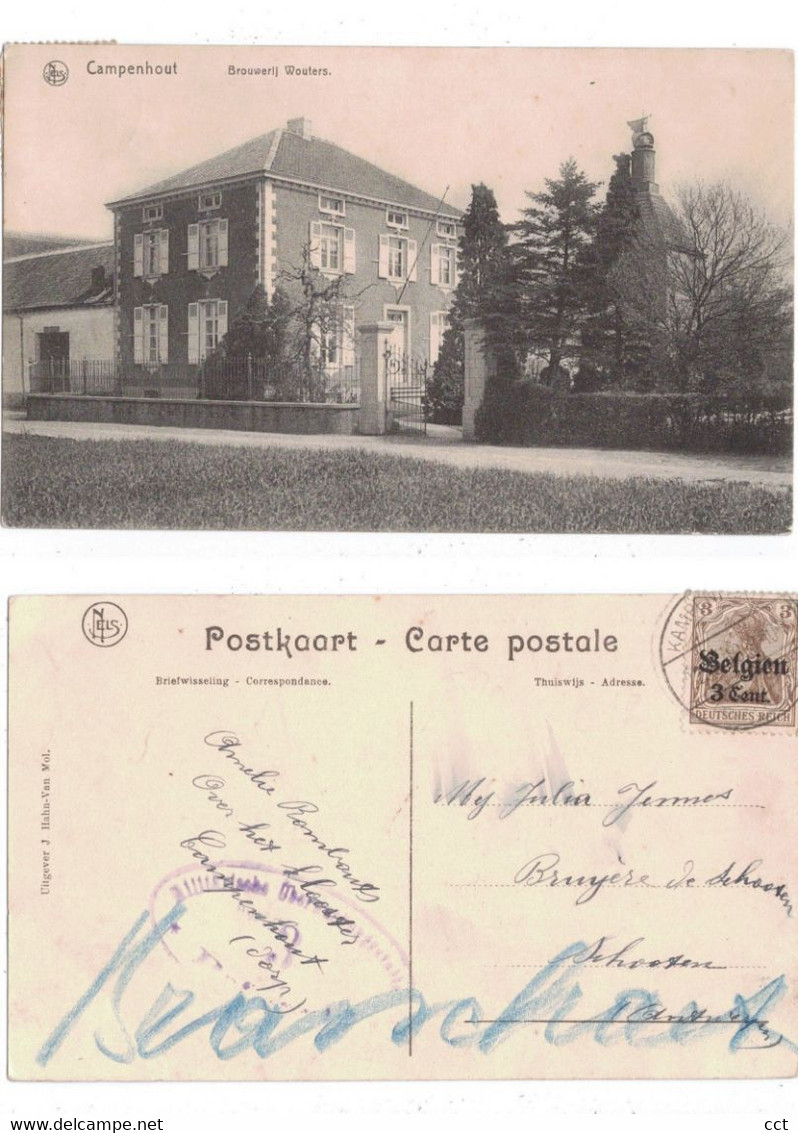 NELS
Campenhout Brouwerij Wouters.
NELS
Postkaart - Carte postale
Briefwisseling - Correspondance.
Thuiswijs - Adresse.
Uitgever J Hahn-Van Mol.
3 3
Belgien
3 Cent.
DEUTSCHES REICH
Amelie Rombauts
Over het klooster
Campenhout
(Dorp)
Mej Julia Jennes
Bruyère de Schooten
Schooten
(Antwerpen)
www.delcampe.net
cct